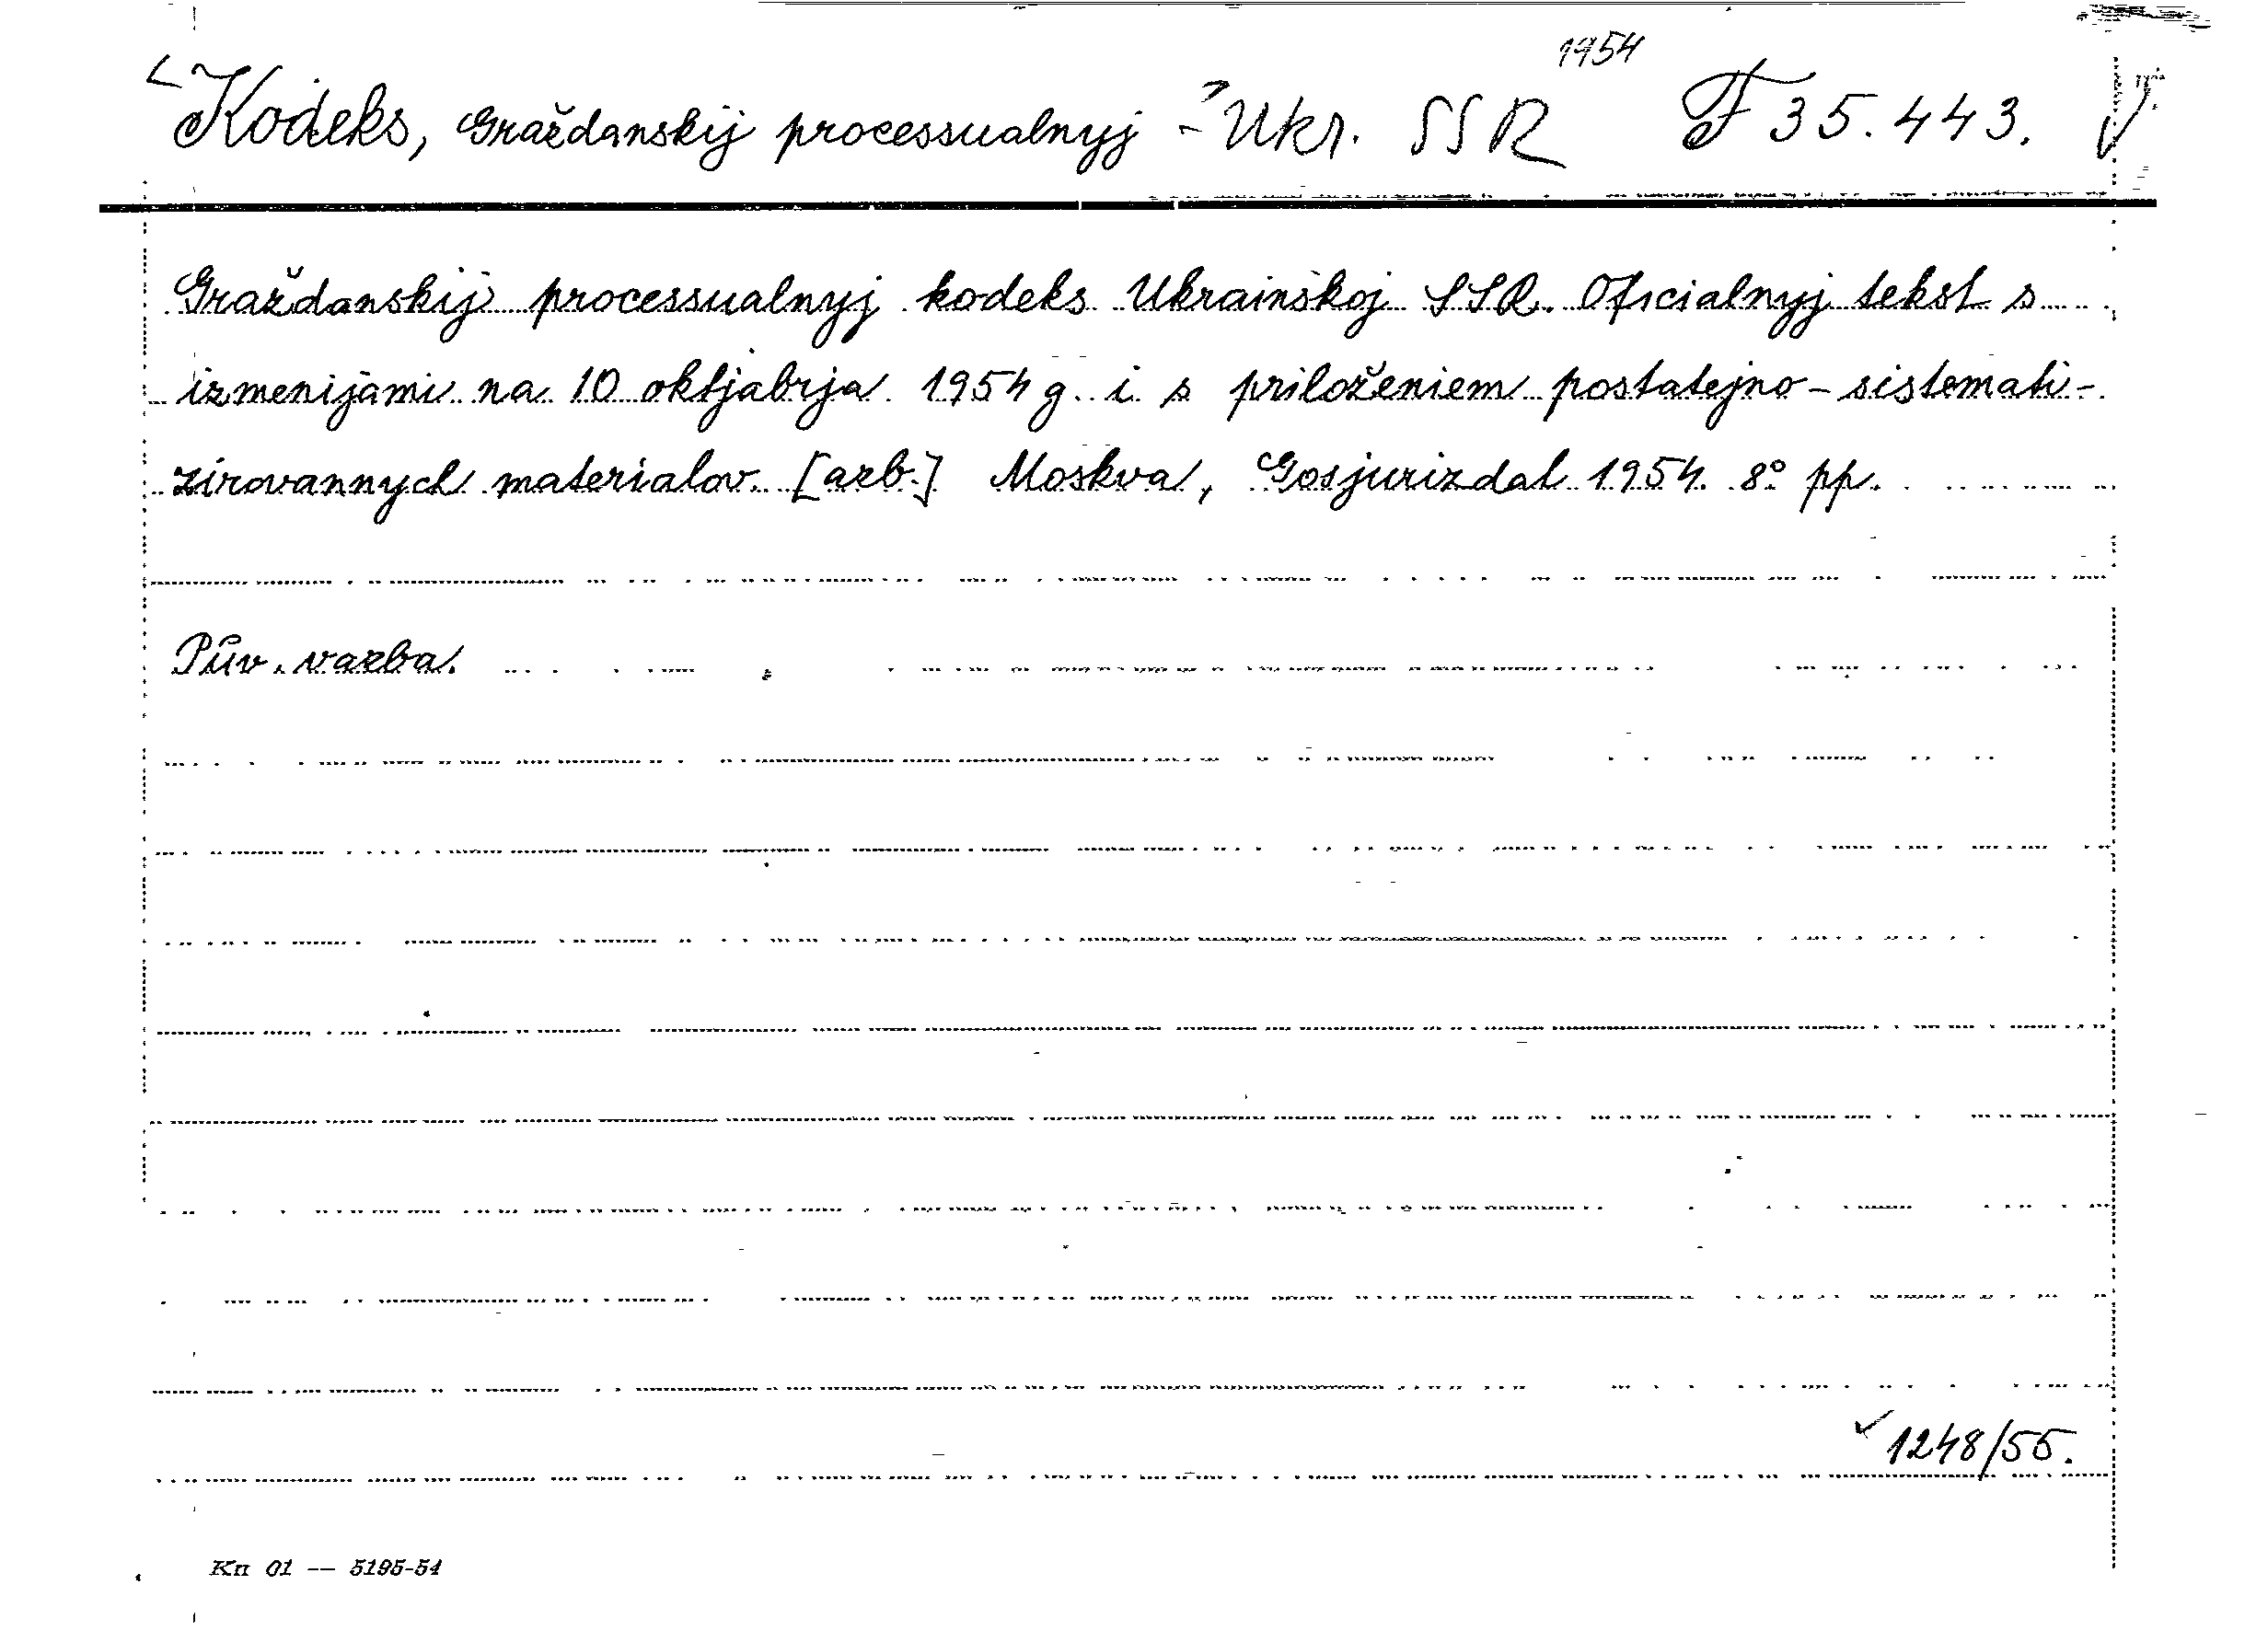 1954
Kodeks, Graždanskij processualnyj - Ukr. SSR F 35.443.
Graždanskij processualnyj kodeks Ukrainskoj SSR. Oficialnyj tekst s
izmenijami na 10 oktjabrja 1954 g. i s priloženiem postatejno-sistemati-
zirovannych materialov. [azb.] Moskva, Gosjurizdat 1954. 8° pp.
Pův. vazba.
1248/55.
Kn 01 — 5195-54